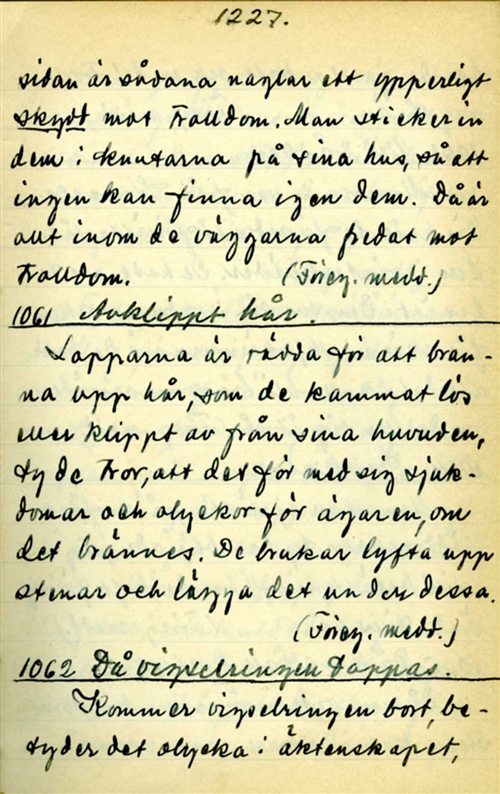 1227.
sidan är sådana naglar ett ypperligt
skydd mot trolldom. Man sticker in
dem i knutarna på sina hus, så att
ingen kan finna igen dem. Då är
allt inom de väggarna fredat mot
trolldom. (Föreg. medd.)
1061 Avklippt hår.
Lapparna är rädda för att brän-
na upp hår, som de kammat lös
eller klippt av från sina huvuden,
ty de tror, att det för med sig sjuk-
domar och olyckor för ägaren, om
det brännes. De brukar lyfta upp
stenar och lägga det under dessa.
(Föreg. medd.)
1062 Då vigselringen tappas.
Kommer vigselringen bort, be-
tyder det olycka i äktenskapet,